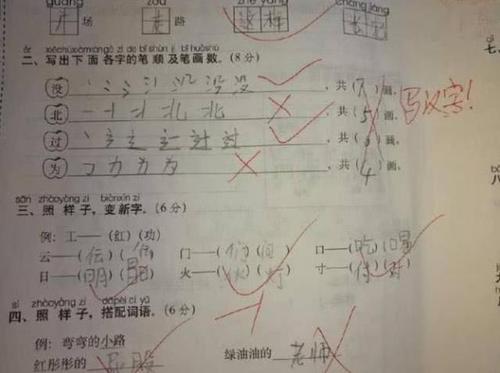 guǎng zǎo zhè yàng cháng jiāng
广场 路 这样
èr xiěchūxiàmiàngè zì de bǐshùn jí bǐhuàshù
二、写出下面各字的笔顺及笔画数。(8分)
没 没 共(7)画。
北 北 共(5)画。 写汉字!
过 过 共(6)画。
为 为 共(4)画。
sān zhàoyàng zi biànxīn zì
三、照样子,变新字。(6分)
例:工——(红)(功)
云——(伝)(传) 门——(们)(问) 口——(吃)(喝)
日——(明)(昌) 火——(伙)(灯) 寸——(付)(对)
sì zhàoyàng zi dāpèi cí yǔ
四、照样子,搭配词语。(6分)
例:弯弯的小路
红彤彤的 屁股 绿油油的 老师